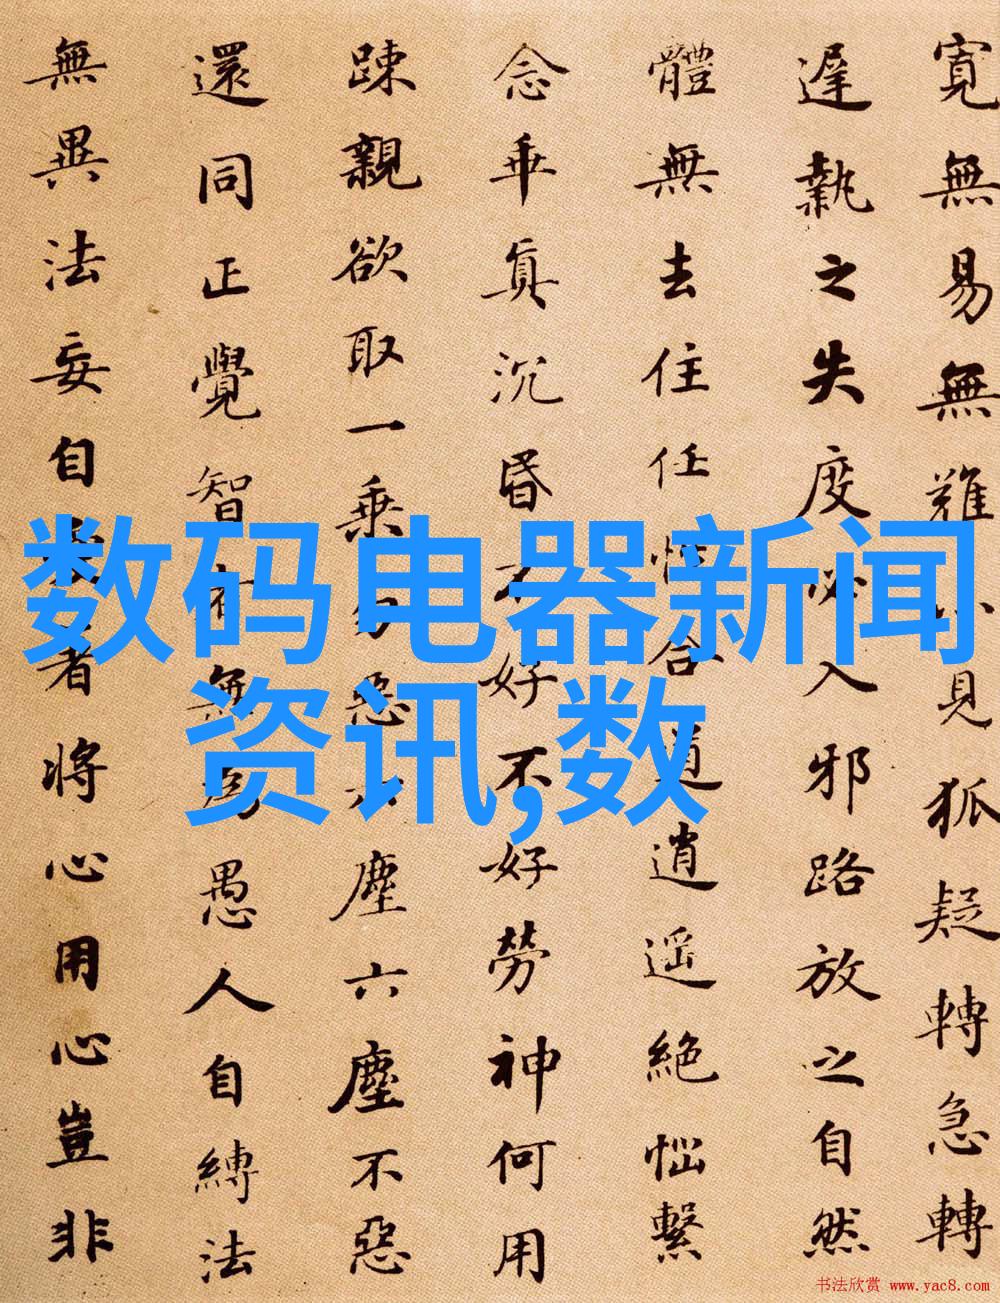 寬無易無難小見狐疑轉急轉
遅執之失度必入邪路放之自然
體無去住任性合道逍遥絶惱繫
念乖真沉昏不好不好勞神何用
踈親欲取一乘勿惡六塵六塵不惡
還同正覺智無為愚人自縛法
無異法妄自著將心用心豈非
数码电器新闻
资讯,数
书法欣赏 www.yac8.com